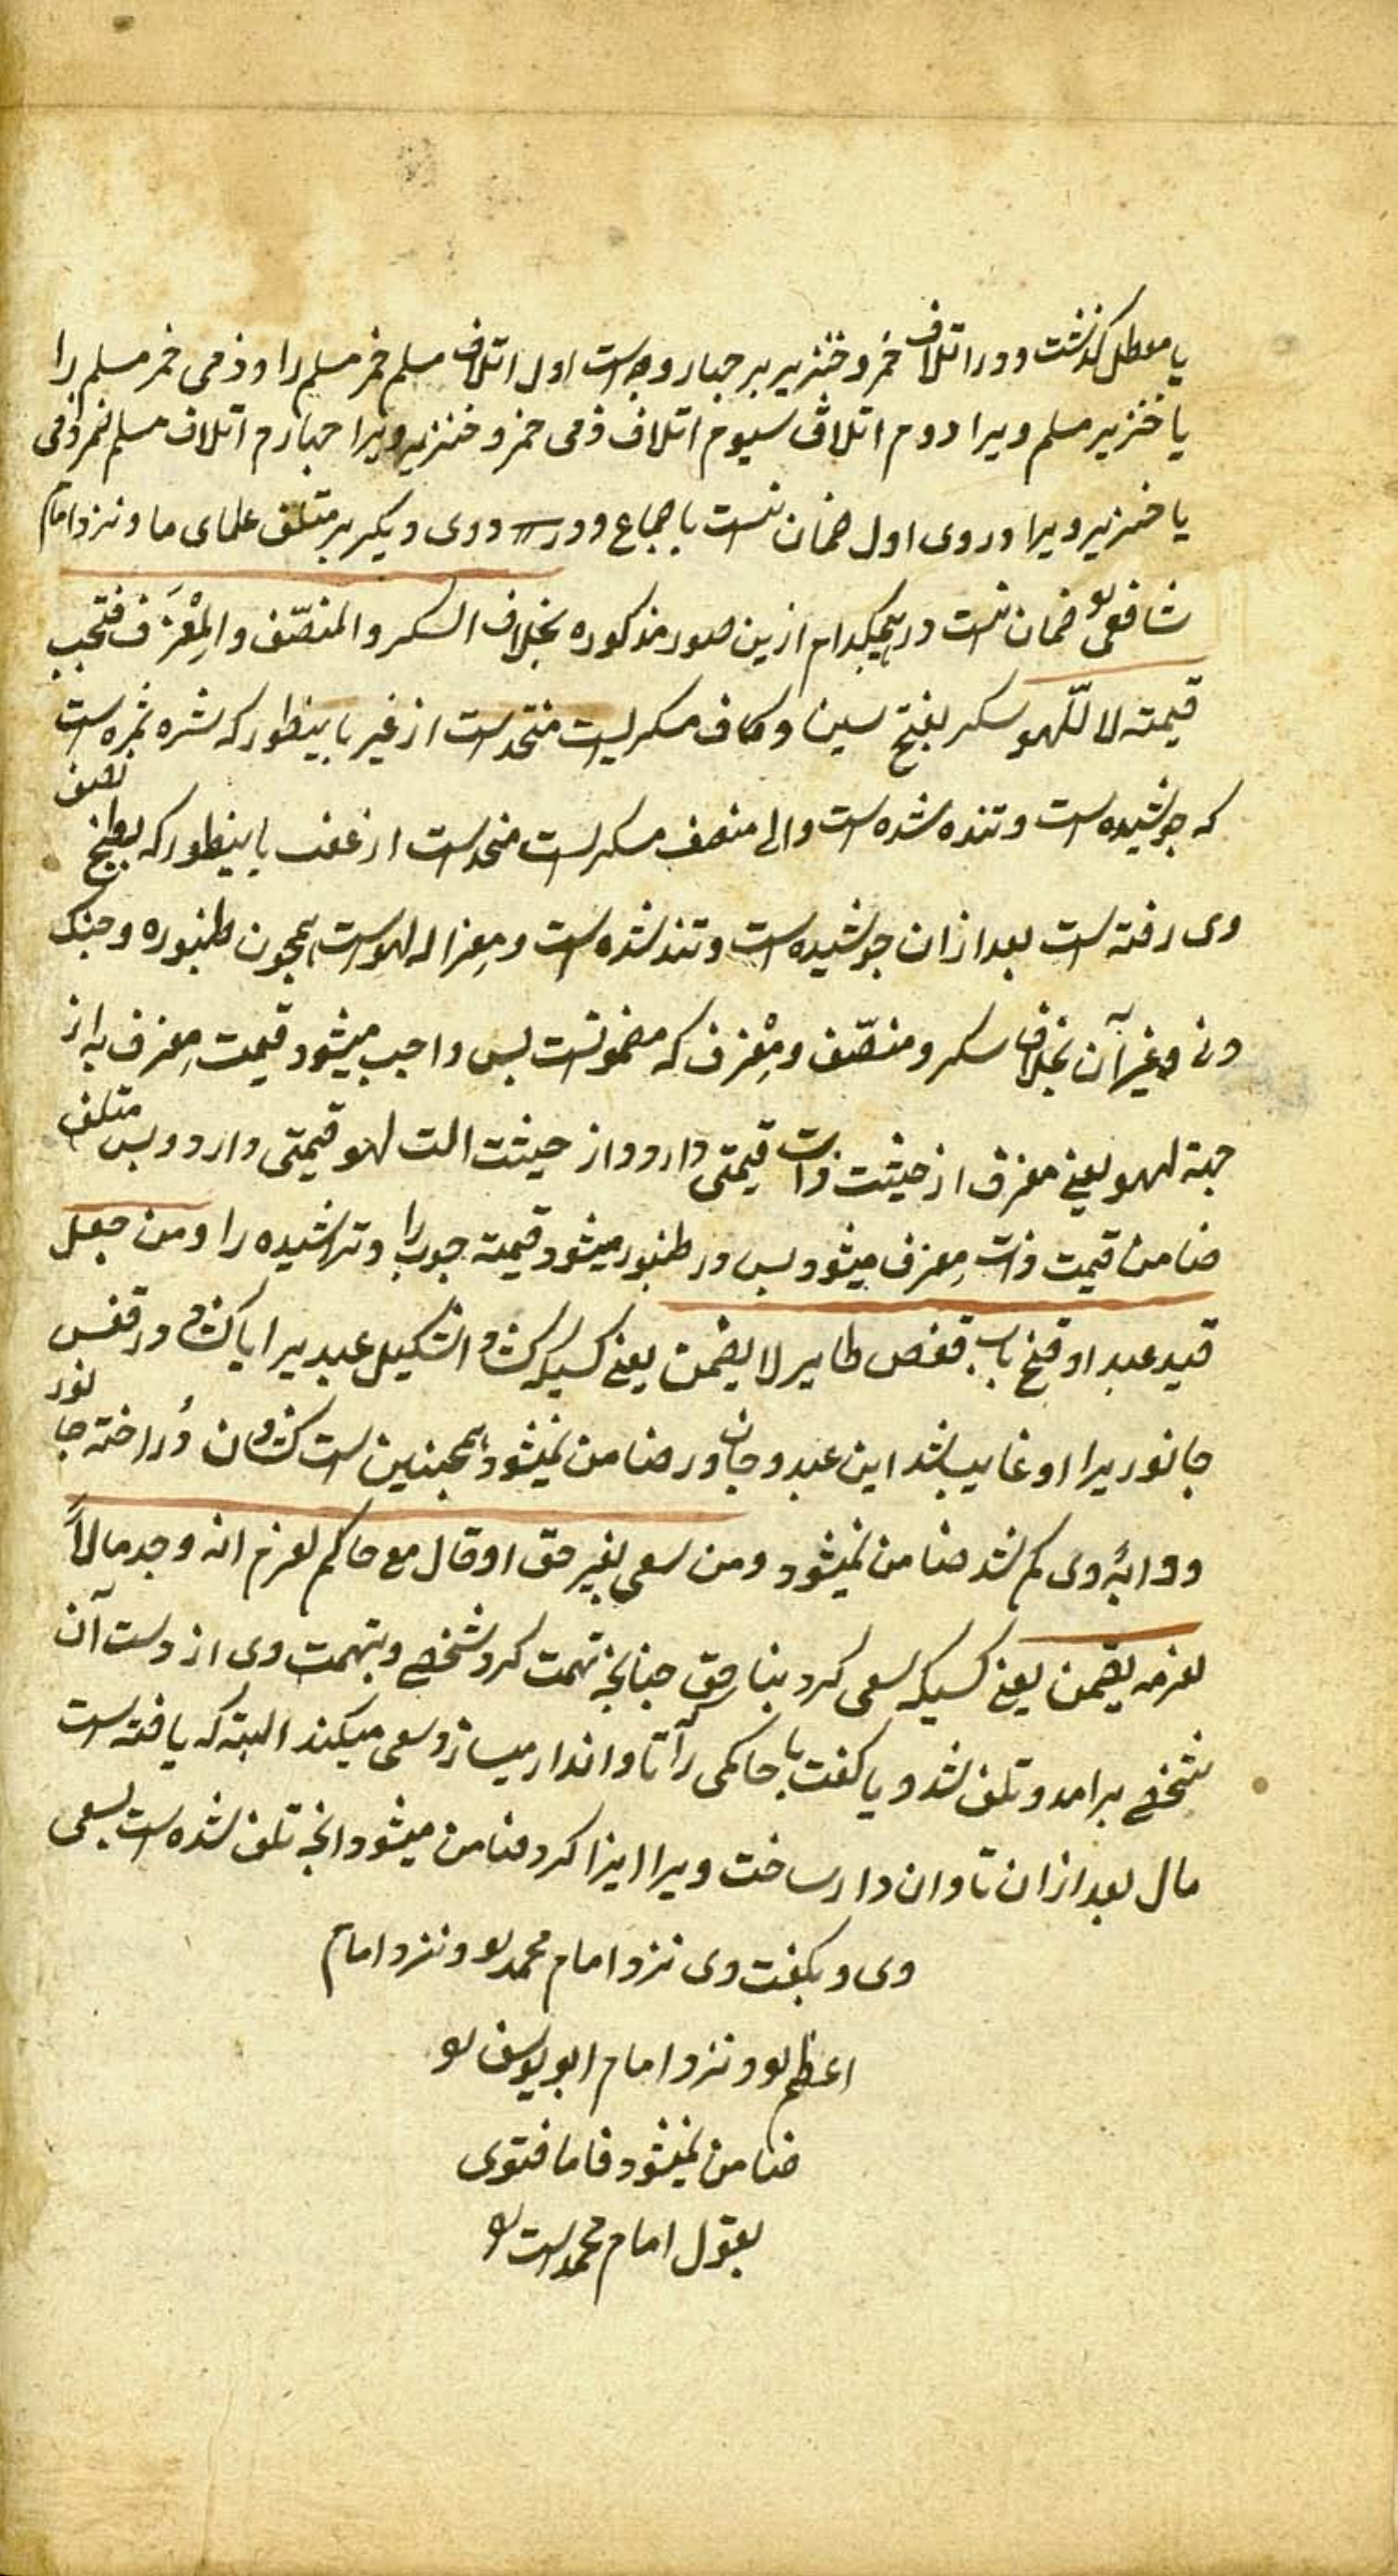 یا معطل کذشت و در اتلاف خمر و خنزیر بر جهار وجه است اول اتلاف مسلم خمر مسلم را و ذمی خمر مسلم را
یا خنزیر مسلم ویرا دوم اتلاف سیوم اتلاف ذمی خمر و خنزیر ویرا جهارم اتلاف مسلم خمر ذمی
یا خنزیر ویرا در وی اول ضمان نیست باجماع و در سه دوی دیکر بر متلف علمای ما و نزد امام
شافعی ضمان نیست در هیچکدام ازین صور مذکوره بخلاف السکر والمنصّف والمِعْزَف فتجب
قیمته لا للّهو سکر بفتح سین و کاف مسکریست متخذ است از غیر باینطور که شره تمره است
که جوشیده است و تنده شده است والی منصف مسکریست متخذ است از عنب باینطور که بطبخ نصف
وی رفته است بعد ازان جوشیده است و تند شده است و معزاله لهو است همجون طنبوره و جنک
و نی و غیر آن بخلاف سکر و منصّف و مِعْزف که مضمونست بس واجب میشود قیمت مِعزف نه از
جهة لهو یعنی معزف از حیثت ذات قیمتی دارد و از حیثت الت لهو قیمتی دارد و بس متلف
ضامن قیمت ذات مِعزف میشود بس در طنبور میشود قیمة جوب را و تراشیده را ومن جعل
قید عبد او فتح باب قفص طایر لا یضمن یعنی کسیکه کشاد اشکیل عبدیرا یا کشاد در قفس
جانوریرا او غایب شد این عبد و جانور ضامن نمیشود همجنین است کشادن در اخته جانور
و دابهٔ وی کم شد ضامن نمیشود ومن سعی بغیر حق او قال مع حاکم لغرم انه وجد مالاً
لغرمه یضمن یعنی کسیکه سعی کرد بناحق جنانجه تهمت کرد شخصی و بتهمت وی از دست آن
شخصی برامد و تلف شد و یا کفت با حاکمی را تا وا ندار میسازد سعی میکند البته که یافته است
مال بعد ازان تاوان دار ساخت ویرا ایزا کرد ضامن میشود انجه تلف شده است بسعی
وی و بکفت وی نزد امام محمد و نزد امام
اعظم و نزد امام ابو یوسف
ضامن نمیشود فاما فتوی
بقول امام محمد است